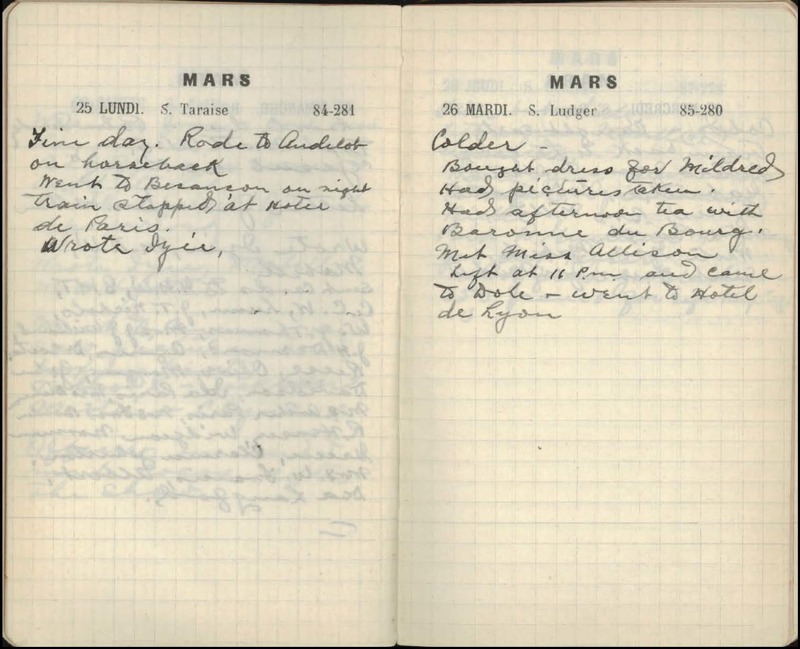 MARS
25 LUNDI. S. Taraise 84-281
Fine day. Rode to Andelot
on horseback
Went to Besancon on night
train stopped at Hotel
de Paris.
Wrote
MARS
26 MARDI. S. Ludger 85-280
Colder –
Bought dress for Mildred
Had pictures taken.
Had afternoon tea with
Baronne du Bourg.
Met Miss Allison
Left at 11 P.m. and came
to Dole – went to Hotel
de Lyon